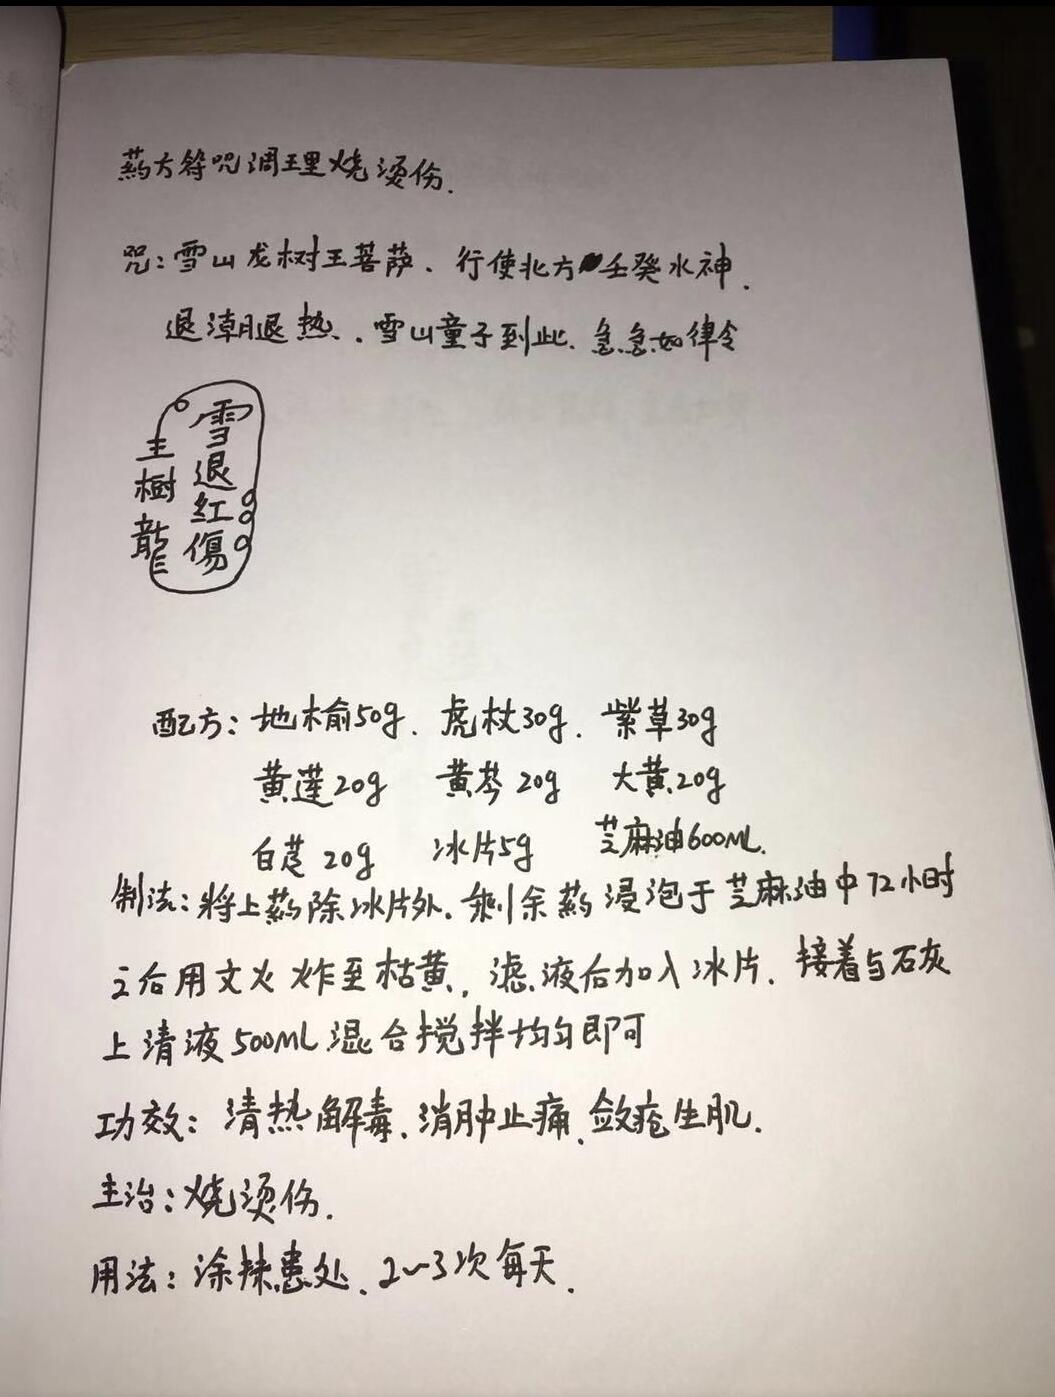 药方符咒调理烧烫伤.
咒：雪山龙树王菩萨、行使北方壬癸水神.
退潮退热、雪山童子到此、急急如律令
雪退红傷
主樹龍
配方：地榆50g、虎杖30g、紫草30g
黄莲20g 黄芩20g 大黄20g
白芷20g 冰片5g 芝麻油600ML.
制法：将上药除冰片外、剩余药浸泡于芝麻油中72小时
之后用文火炸至枯黄，滤液后加入冰片、接着与石灰
上清液500ML混合搅拌均匀即可
功效：清热解毒、消肿止痛、敛疮生肌.
主治：烧烫伤.
用法：涂抹患处、2~3次每天.